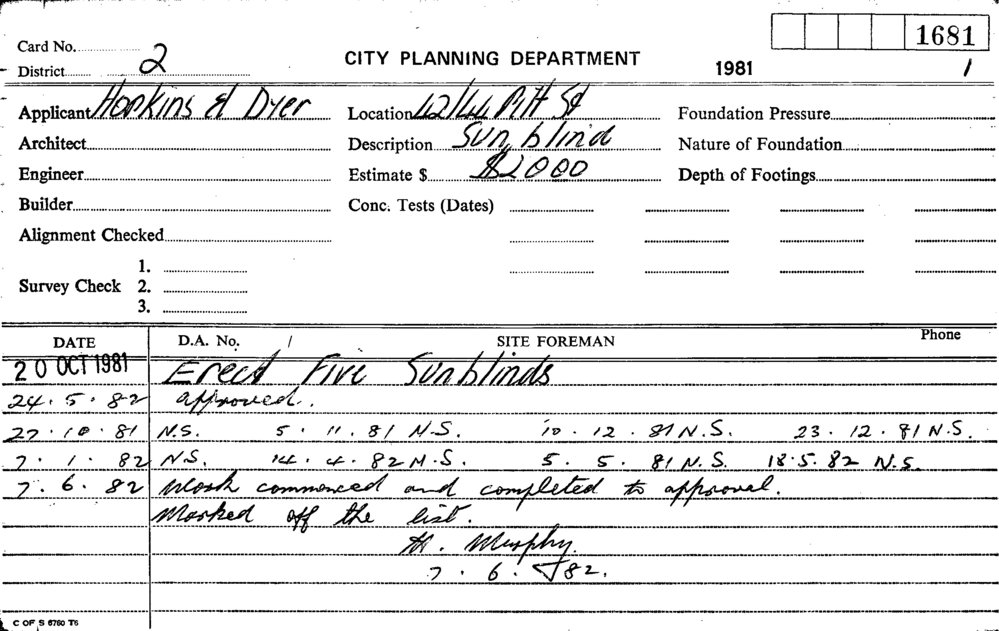 Card No. 1681
District 2 CITY PLANNING DEPARTMENT 1981 1
Applicant Hopkins & Dyer Location 42/44 Pitt St Foundation Pressure
Architect Description Sun blind Nature of Foundation
Engineer Estimate $ $2000 Depth of Footings
Builder Conc. Tests (Dates)
Alignment Checked
1.
Survey Check 2.
3.
DATE D.A. No. / SITE FOREMAN Phone
20 OCT 1981 Erect Five Sunblinds
24.5.82 approved.
27.10.81 N.S. 5.11.81 N.S. 10.12.81 N.S. 23.12.81 N.S.
7.1.82 N.S. 14.4.82 N.S. 5.5.81 N.S. 18.5.82 N.S.
7.6.82 Work commenced and completed to approval.
Marked off the list.
M. Murphy.
7.6.82.
C OF S 6760 T6